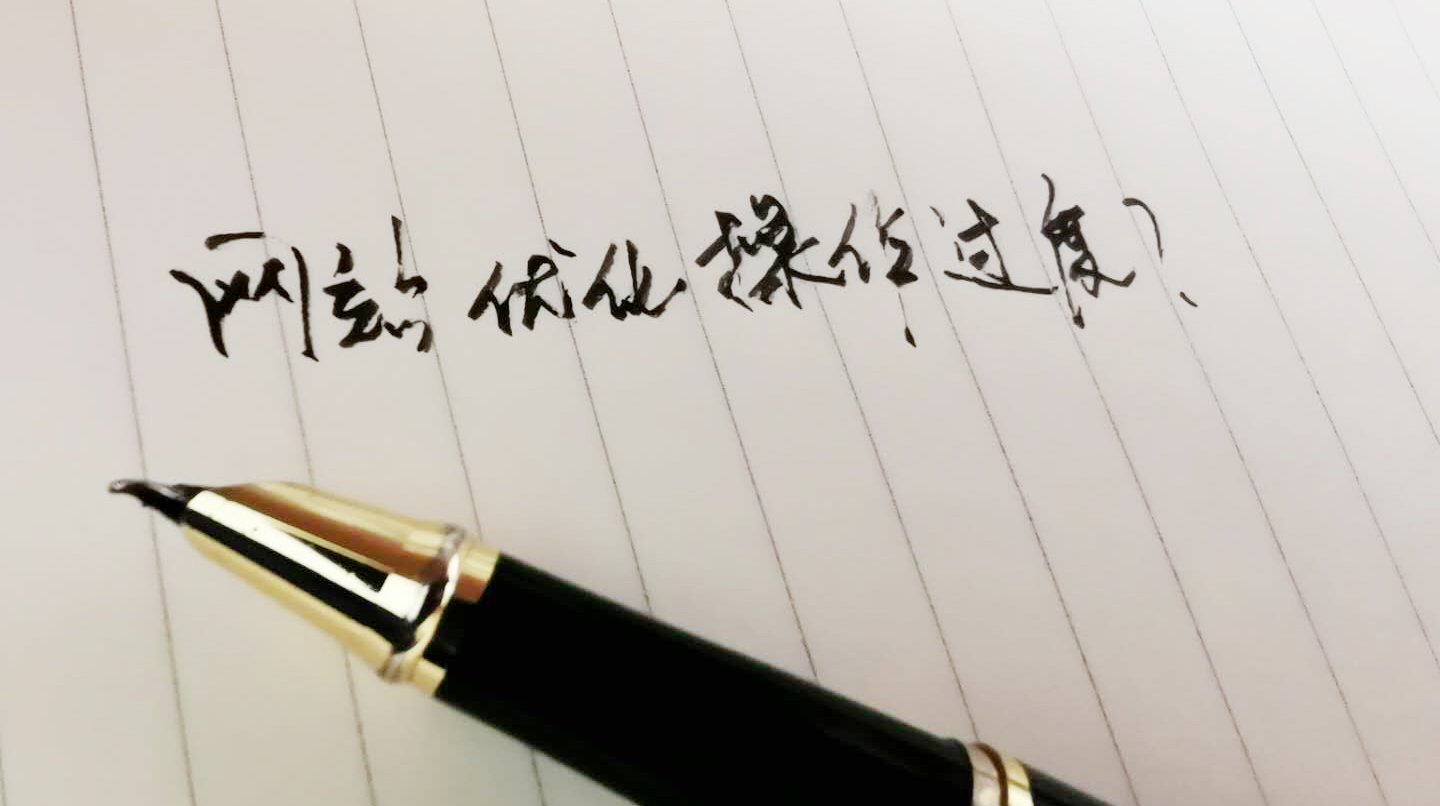 网站优化操作过度?